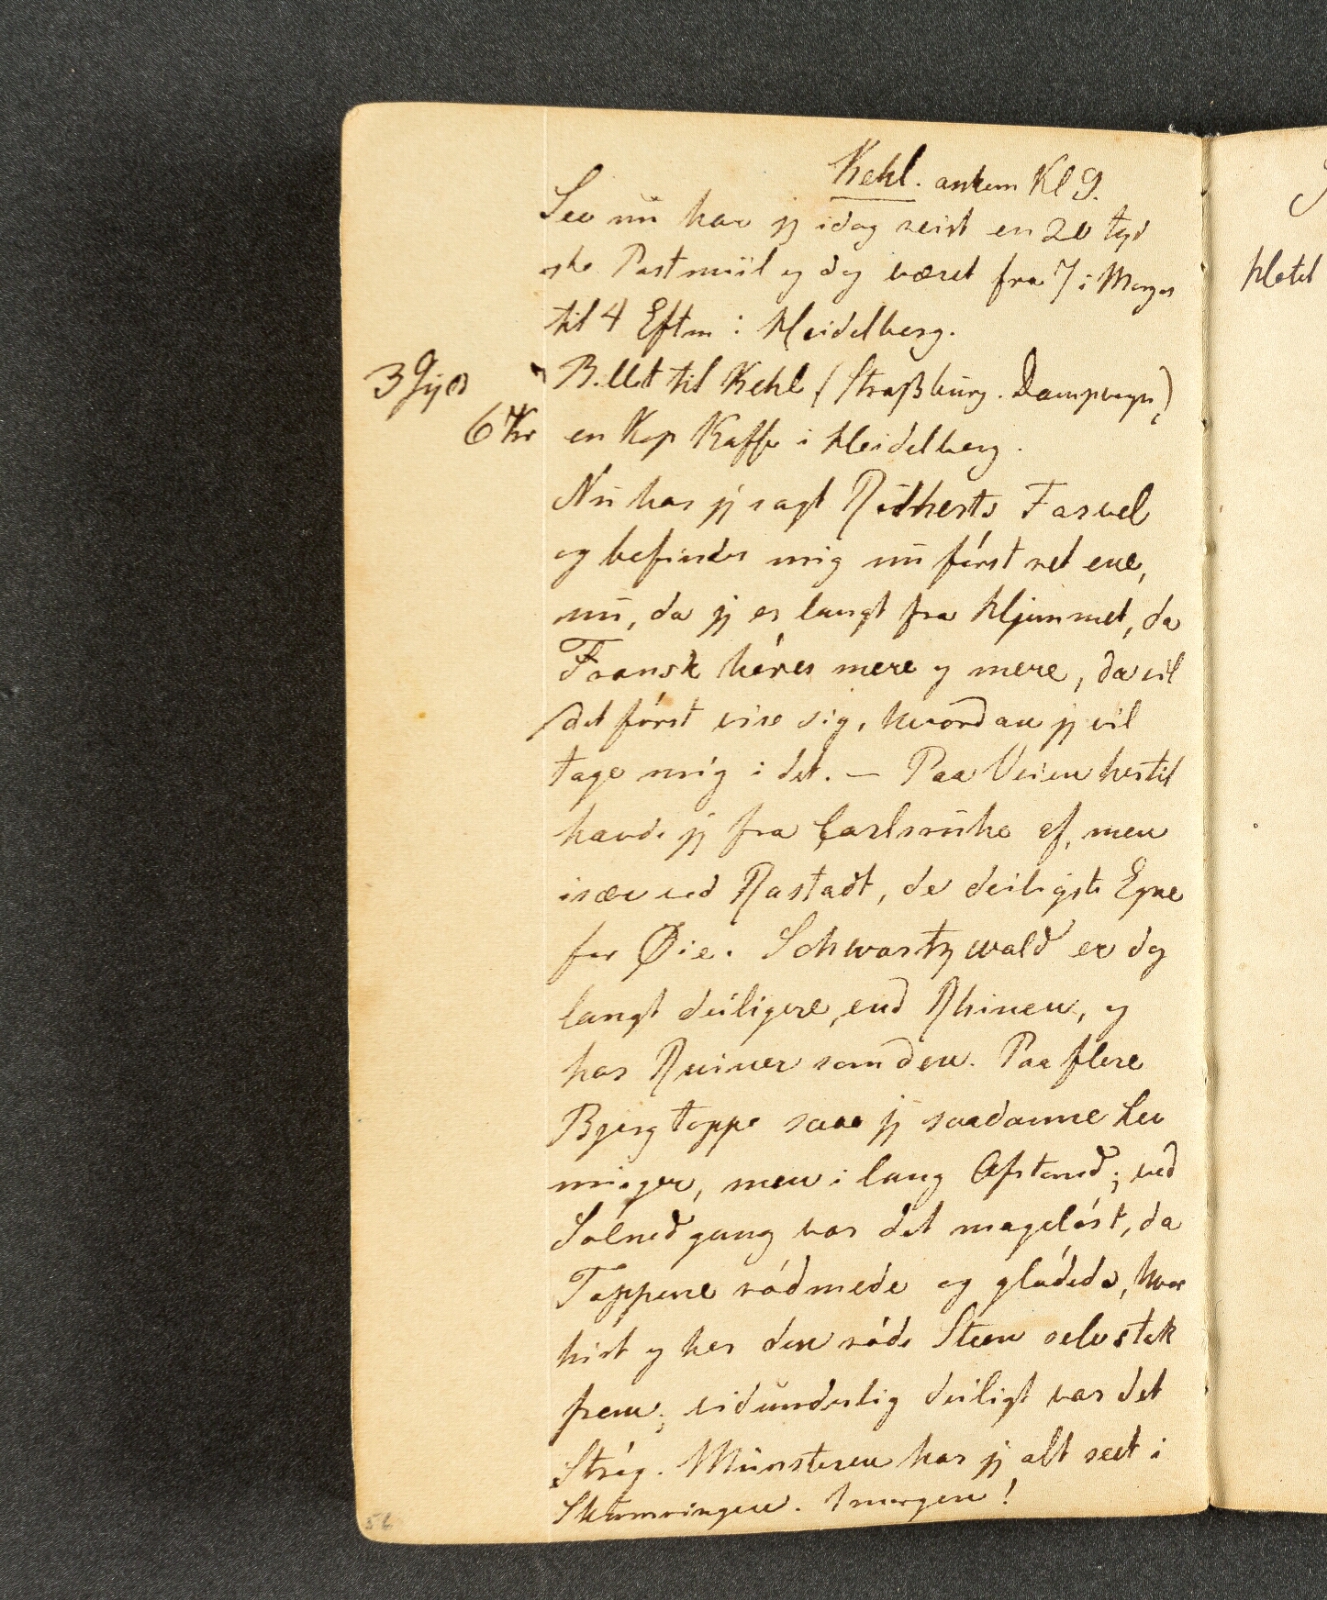 Kehl. ankom Kl 9.
See nu har jeg idag reist en 20 tyd
ske Postmiil og dog været fra 7 i Morges
til 4 Eftm i Heidelberg.
3 Gyld Billet til Kehl (Straßburg. Dampvogn)
6 Kr en Kop Kaffe i Heidelberg.
Nu har jeg sagt Rödherts Farvel
og befinder mig nu först ret ene,
nu, da jeg er langt fra Hjemmet, da
Fransk höres mere og mere, da vil
det först vise sig, hvordan jeg vil
tage mig i det. — Paa Veien hertil
havde jeg fra Carlsruhe af, men
især ved Rastadt, de deiligste Egne
for Øie. Schwartzwald er dog
langt deiligere, end Rhinen, og
har Ruiner som den. Paa flere
Bjergtoppe saae jeg saadanne Lev
ninger, men i lang Afstand; ved
Solnedgang var det mageløst, da
Toppene rödmede og glödede, hvor
hist og her den röde Steen selv stak
frem; vidunderlig deiligt var det
Strög. Münsteren har jeg alt seet i
Skumringen. Imorgen!
Hotel
56